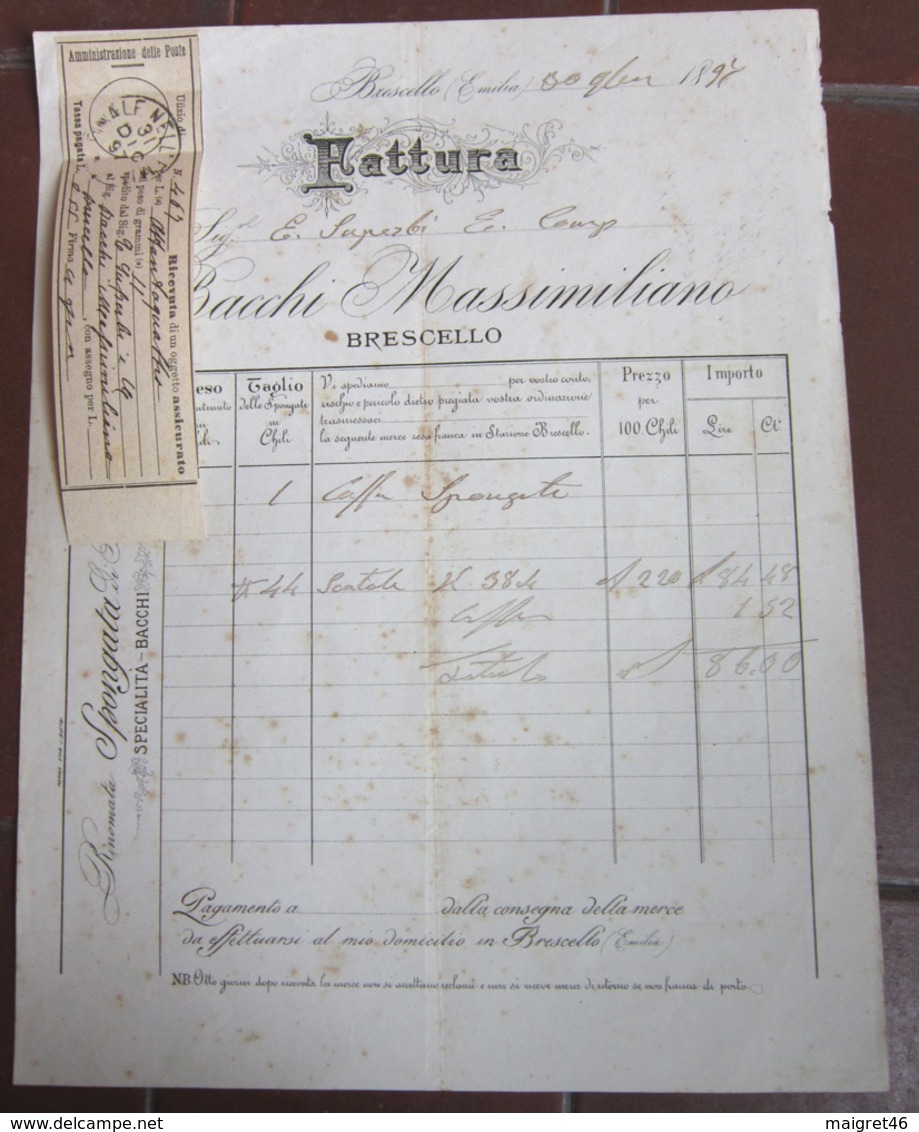 Brescello (Emilia) 30 9bre 1897
Fattura
Sig. E. Superbi E. Comp
Bacchi Massimiliano
BRESCELLO
eso
Taglio
delle Spongate
in
Chili
Vi spediamo per vostro conto,
rischio e pericolo dietro pregiata vostra ordinazione
trasmessaci
la seguente merce resa franca in Stazione Brescello.
Prezzo
per
100 Chili
Importo
Lire
Ct.
1 Cassa Spongate
44 K 38 220 84 48
Cassa 1 52
86.00
Rinomata Spongata Di
SPECIALITÀ - BACCHI
Pagamento a dalla consegna della merce
da effettuarsi al mio domicilio in Brescello (Emilia)
NB. Otto giorni dopo ricevuta la merce non si accettano reclami e non si riceve merce di ritorno se non franca di porto.
Amministrazione delle Poste
Ufizio di
N. 467
Ricevuta di un oggetto assicurato
per L. (a)
peso di grammi (a)
spedito dal Sig. E. Superbi e C
al Sig. Bacchi Massimiliano
Brescello, con assegno per L.
Tassa pagata L. Firma
31 DIC 97
delcampe.net
maigret46